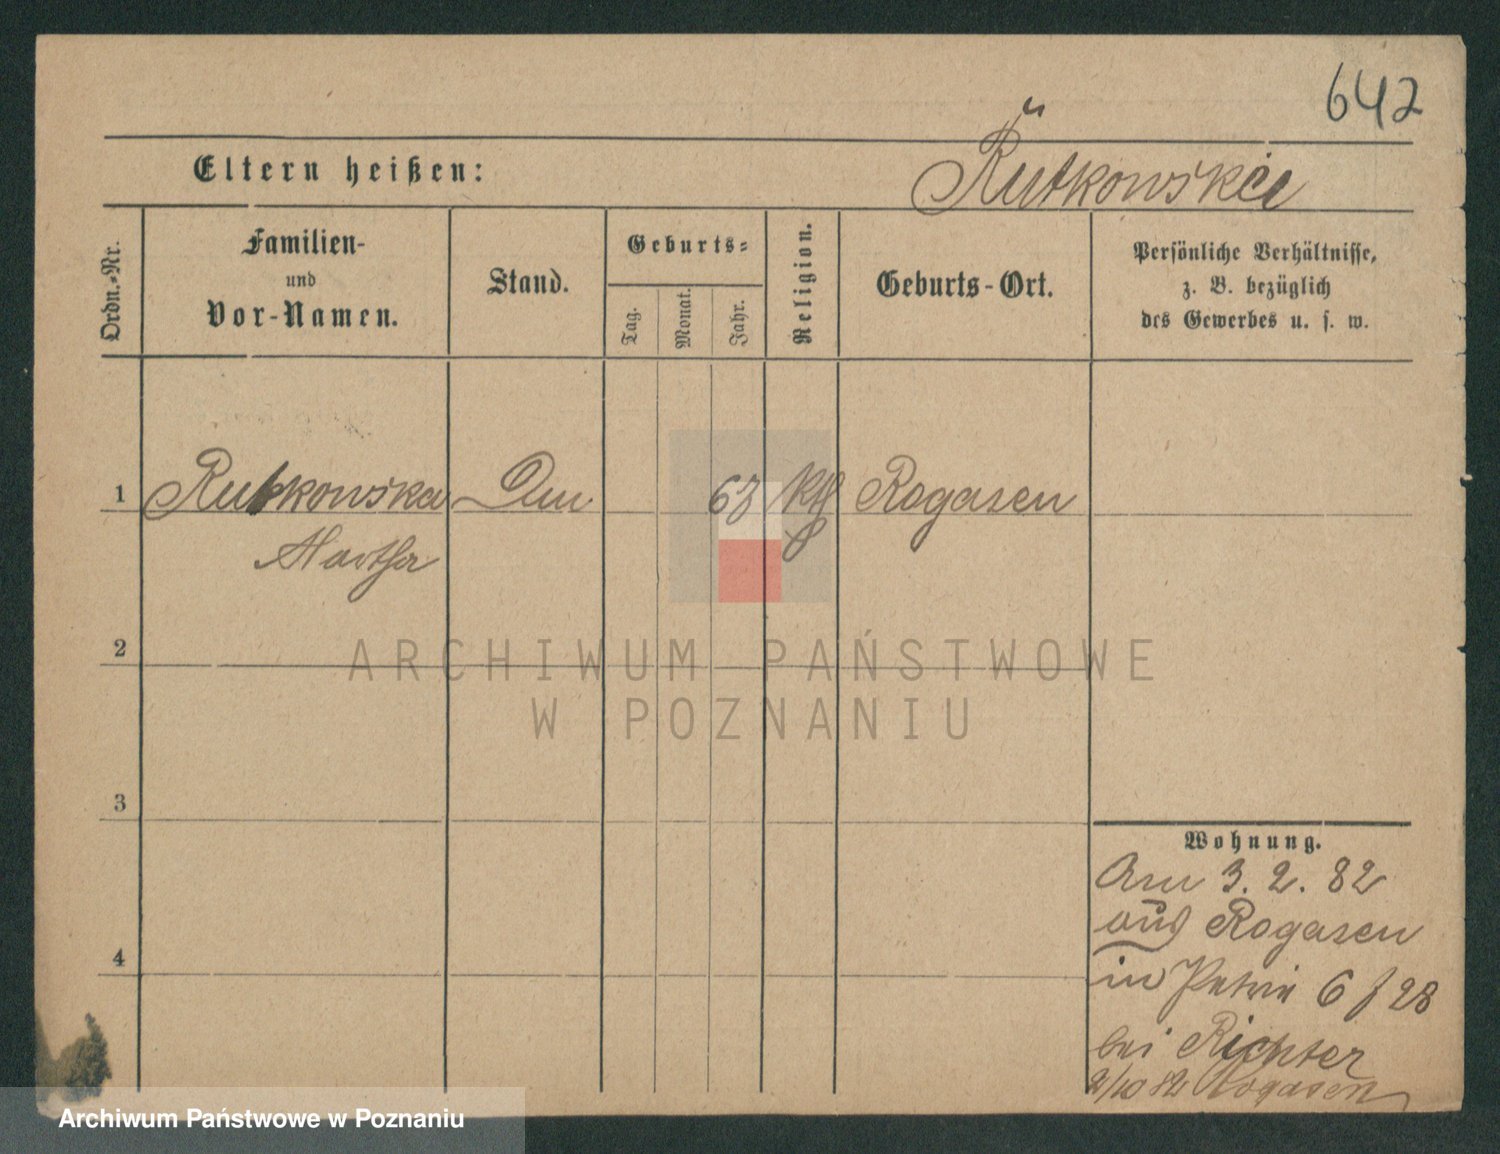 642
Eltern heißen:
Rutkowska
Ordn.-Nr.
Familien-
und
Vor-Namen.
Stand.
Geburts-
Tag.
Monat.
Jahr.
Religion.
Geburts-Ort.
Persönliche Verhältnisse,
z. B. bezüglich
des Gewerbes u. s. w.
1
Rutkowska
63
Kth
Rogasen
Martha
2
ARCHIWUM PAŃSTWOWE
W POZNANIU
3
Wohnung.
Am 3. 2. 82
aus Rogasen
4
in Petrie 6 f 28
bei Richter
2/10 82 Rogasen
Archiwum Państwowe w Poznaniu